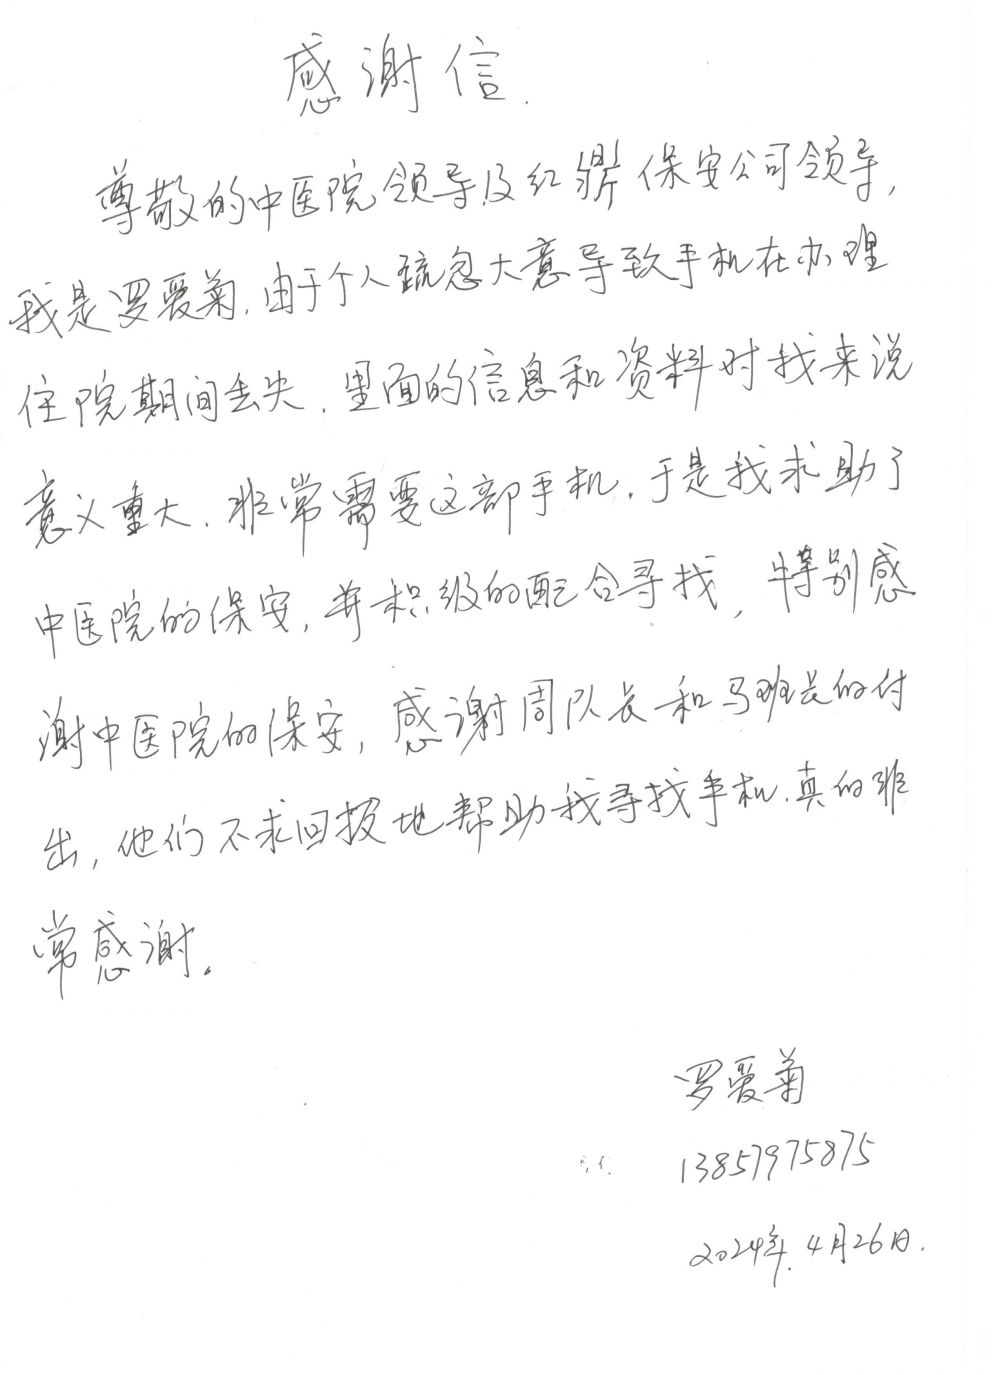 感谢信.
尊敬的中医院领导及红 保安公司领导,
我是罗爱菊.由于个人疏忽大意导致手机在办理
住院期间丢失.里面的信息和资料对我来说
意义重大.非常需要这部手机.于是我求助了
中医院的保安,并积级的配合寻找,特别感
谢中医院的保安,感谢周队长和马班长的付
出,他们不求回报地帮助我寻找手机.真的非
常感谢。
罗爱菊
13857975875
2024年.4月26日.